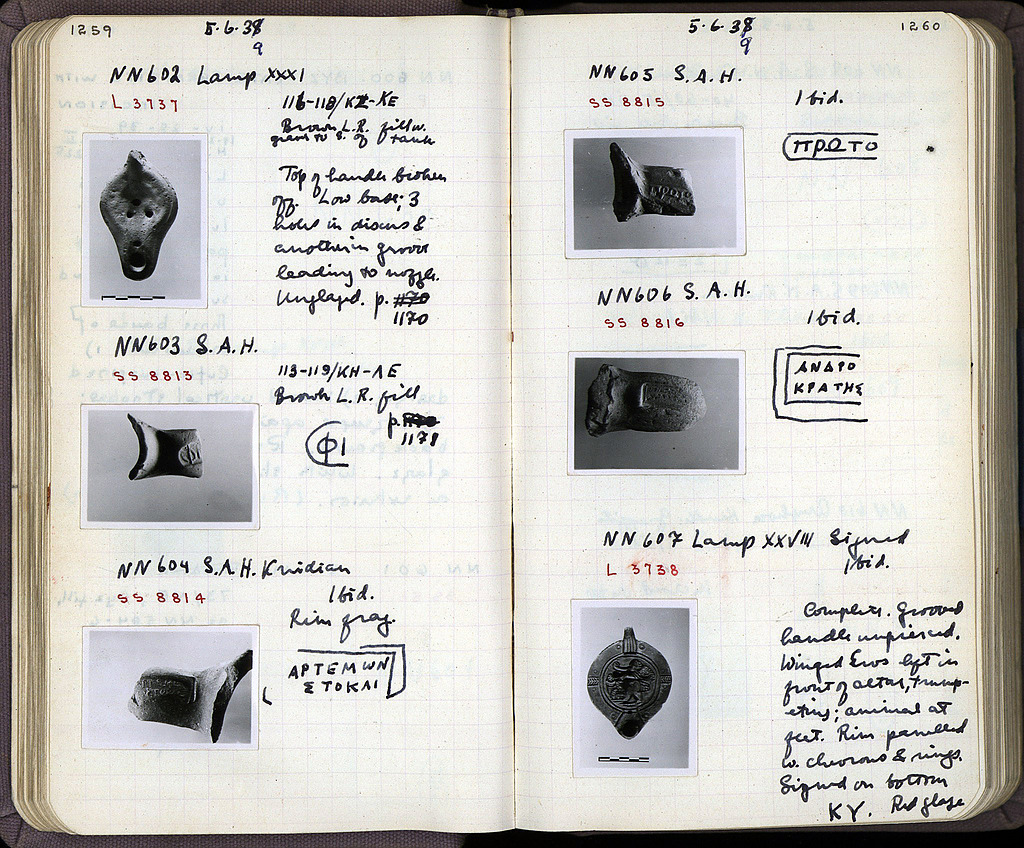 1259
5.6.38
9
NN602 Lamp XXXI
L 3737
116-118/KZ-KE
Brown L.R. fill w.
of tank
Top of handle broken
off. Low base; 3
holes in discus &
another in groove
leading to nozzle.
Unglazed. p. 1170
1170
NN603 S.A.H.
SS 8813
113-119/KH-ΛE
Brown L.R. fill
p.
1171
ΦΙ
NN604 S.A.H. Knidian
SS 8814
Ibid.
Rim frag.
ΑΡΤΕΜΩΝ
ΣΤΟΚΛΙ
5.6.38
9
1260
NN605 S.A.H.
SS 8815
Ibid.
ΠΡΩΤΟ
NN606 S.A.H.
SS 8816
Ibid.
ΑΝΔΡΟ
ΚΡΑΤΗΣ
NN607 Lamp XXVIII Signed
L 3738
Ibid.
Complete. Grooved
handle unpierced.
Winged Eros left in
front of altar, trump-
eting; animal at
feet. Rim panelled
w. chevrons & rings.
Signed on bottom
ΚΥ. Red glaze